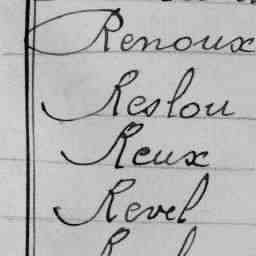 Renoux
Reslou
Reux
Revel